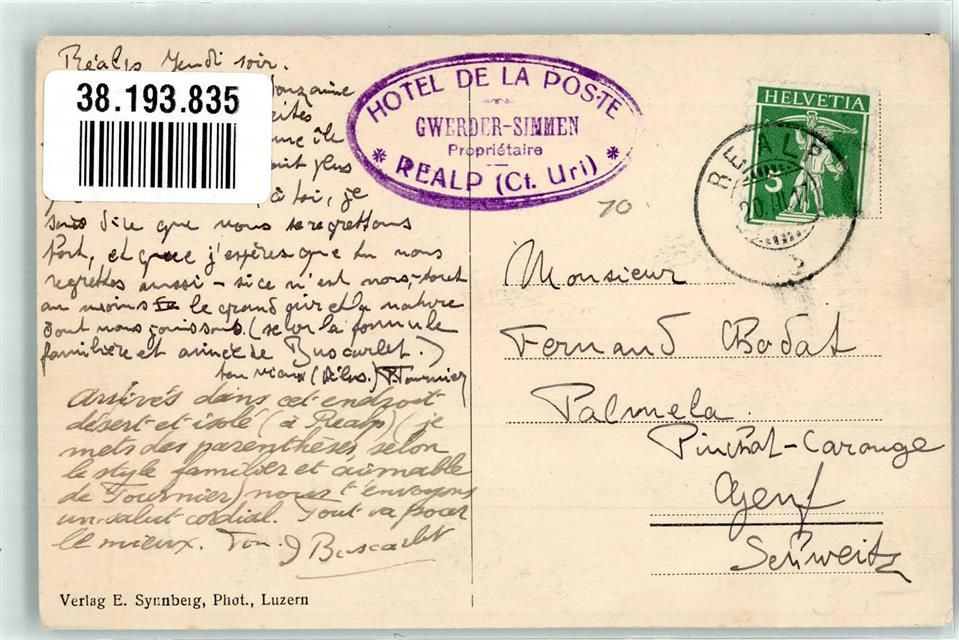 Réalp Jeudi soir.
38.193.835
une île
plus
à toi, je
dis que nous te regrettons
fort, et que j'espère que tu nous
regrettes aussi – si ce n'est nous, tout
au moins le grand air et la nature
dont nous jouissons. (selon la formule
familière et aimée de Buscarlet.)
ton vieux (Vélus.) F. Tournier
Arrivés dans cet endroit
désert et isolé (à Realp) (je
mets des parenthèses, selon
le style familier et aimable
de Tournier) nous t'envoyons
un salut cordial. Tout va pour
le mieux. Ton J Buscarlet
Verlag E. Synnberg, Phot., Luzern
HOTEL DE LA POSTE
GWERDER-SIMMEN
Propriétaire
REALP (Ct. Uri)
70.
HELVETIA
5
REALP
Monsieur
Fernand Chodat
Palmela
Pinchat-Carouge
Genf
Schweitz